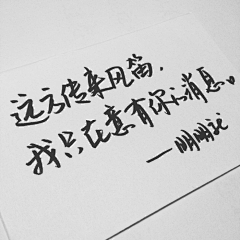 远方传来风笛,
我只在意有你的消息。
——明明就